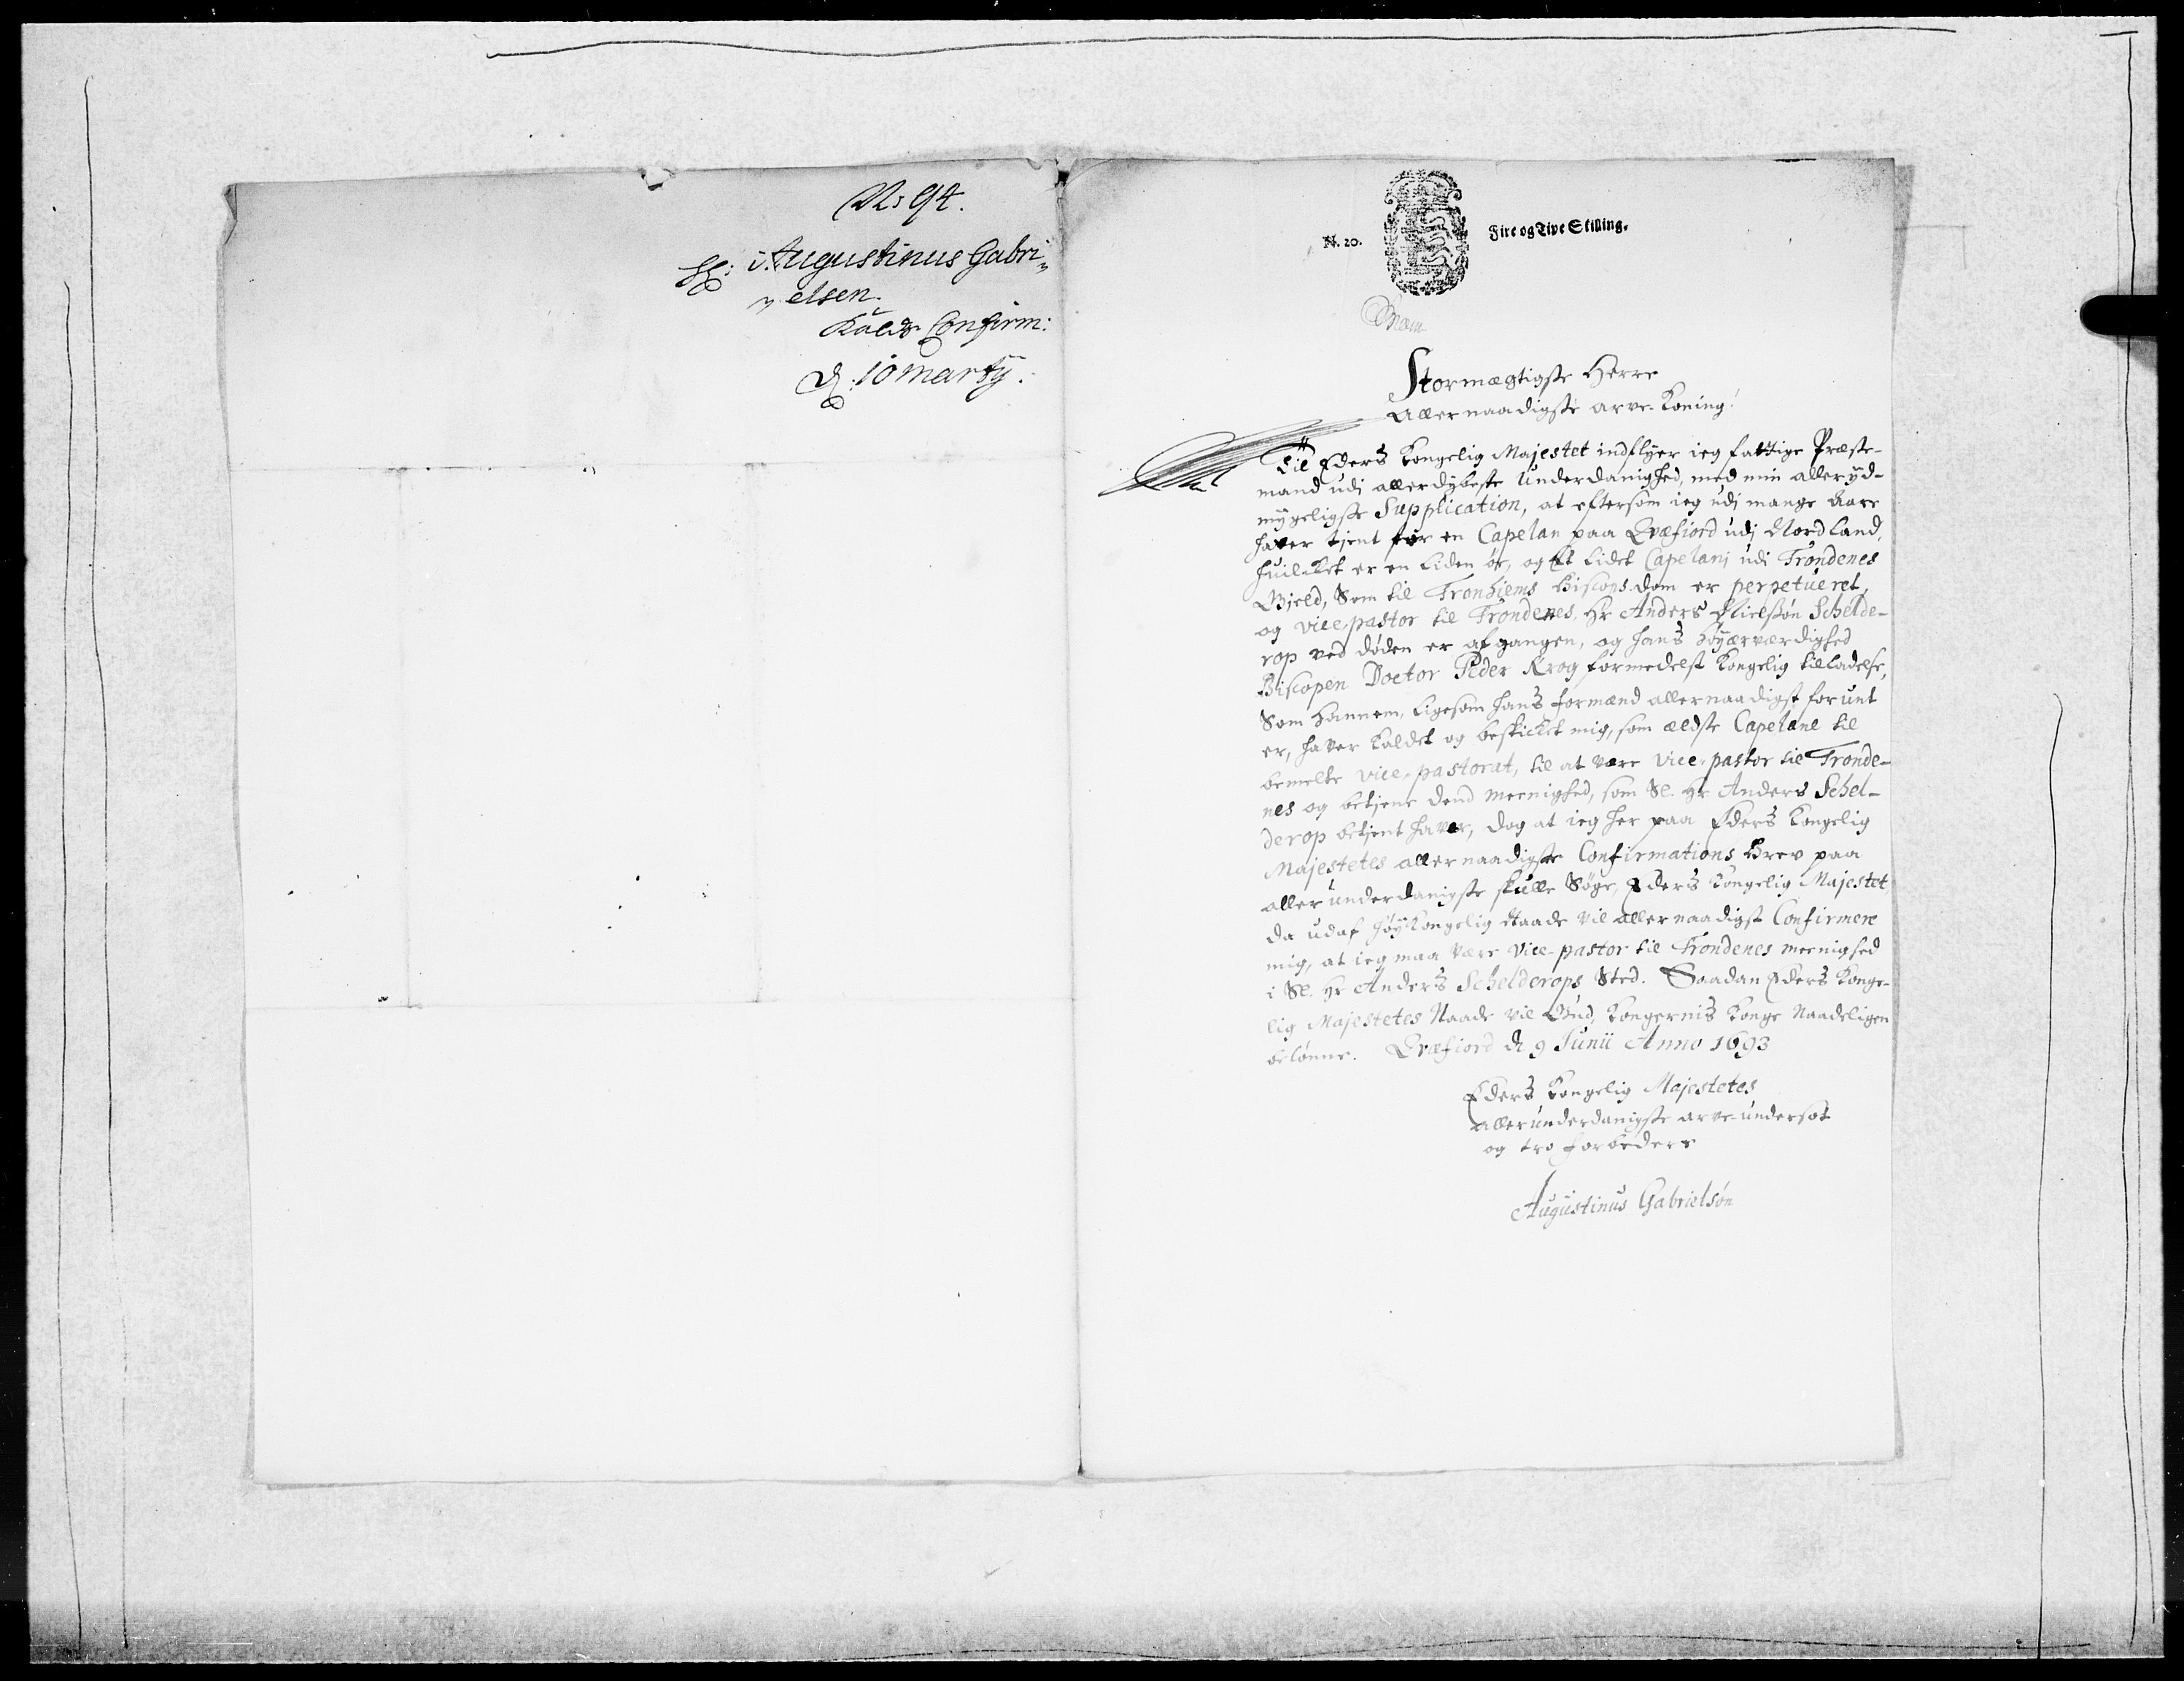 N: 94.
Hr: Augustinus Gabri„
„elsen.
Kalds Confirm:
d: 10 Martij.
N. 20.
Fire og Tive Skilling.
Stormægtigste Herre
Allernaadigste arve-Koning!
Til Eders Kongelig Majestet indflyer ieg fattige Præste-
mand udi allerdybeste Underdanighed, med min allerÿd-
mygeligste Supplication, at eftersom ieg udj mange Aare
haver tjent for en Capelan paa Qvæfiord udj Nordland,
huilcket er en liden øe, og Et lidet Capelanj udi Trondenes
Gjeld, Som til Tronhiems Biscops-dom er perpetueret,
og vice-pastor til Trondenes, Hr Anders Nielssøn Schelde-
rop ved døden er afgangen, og hans Høyærværdighed
Biscopen Doctor Peder Krog formedelst Kongelig tilladelse,
Som hannem, ligesom hans formænd allernaadigst forunt
er, haver kaldet og beskicket mig, som ældste Capelane til
bemelte vice-pastorat, til at være vice-pastor til Tronde-
nes og betjene dend meenighed, som Sl. Hr Anders Schel-
derop betjent haver, dog at ieg her paa Eders Kongelig
Majestetes allernaadigste Confirmations Brev paa
allerunderdanigste skulle Søge, Eders Kongelig Majestet
da udaf høyKongelig Naade vil allernaadigst Confirmere
mig, at ieg maa være Vice-pastor til Trondenes meenighed
i Sl. Hr Anders Schelderops Sted. Saadan Eders Konge-
lig Majestetes Naade vil Gud, Kongernis Konge Naadeligen
belønne. Qvæfiord d. 9 Junii Anno 1693
Eders Kongelig Majestetes
allerunderdanigste arve-undersot
og tro forbedere
Augustinus Gabrielsøn